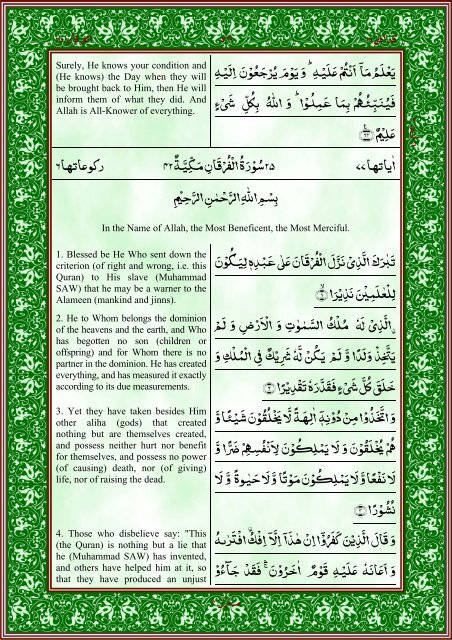 Surely, He knows your condition and
(He knows) the Day when they will
be brought back to Him, then He will
inform them of what they did. And
Allah is All-Knower of everything.
يَعْلَمُ مَآ اَنْتُمْ عَلَيْهِ ؕ وَ يَوْمَ يُرْجَعُوْنَ اِلَيْهِ
فَيُنَبِّئُهُمْ بِمَا عَمِلُوْا ؕ وَ اللّٰهُ بِكُلِّ شَيْءٍ
عَلِيْمٌ
اٰیاتها ۷۷ ۲۵ سُوْرَةُ الْفُرْقَانِ مَكِّيَّةٌ ۴۲ ركوعاتها ۶
بِسْمِ اللّٰهِ الرَّحْمٰنِ الرَّحِيْمِ
In the Name of Allah, the Most Beneficent, the Most Merciful.
1. Blessed be He Who sent down the
criterion (of right and wrong, i.e. this
Quran) to His slave (Muhammad
SAW) that he may be a warner to the
Alameen (mankind and jinns).
تَبٰرَكَ الَّذِيْ نَزَّلَ الْفُرْقَانَ عَلٰى عَبْدِهٖ لِيَكُوْنَ
لِلْعٰلَمِيْنَ نَذِيْرًا
2. He to Whom belongs the dominion
of the heavens and the earth, and Who
has begotten no son (children or
offspring) and for Whom there is no
partner in the dominion. He has created
everything, and has measured it exactly
according to its due measurements.
الَّذِيْ لَهٗ مُلْكُ السَّمٰوٰتِ وَ الْاَرْضِ وَ لَمْ
يَتَّخِذْ وَلَدًا وَّ لَمْ يَكُنْ لَّهٗ شَرِيْكٌ فِي الْمُلْكِ وَ
خَلَقَ كُلَّ شَيْءٍ فَقَدَّرَهٗ تَقْدِيْرًا
3. Yet they have taken besides Him
other aliha (gods) that created
nothing but are themselves created,
and possess neither hurt nor benefit
for themselves, and possess no power
(of causing) death, nor (of giving)
life, nor of raising the dead.
وَ اتَّخَذُوْا مِنْ دُوْنِهٖٓ اٰلِهَةً لَّا يَخْلُقُوْنَ شَيْـًٔا وَّ
هُمْ يُخْلَقُوْنَ وَ لَا يَمْلِكُوْنَ لِاَنْفُسِهِمْ ضَرًّا وَّ
لَا نَفْعًا وَّ لَا يَمْلِكُوْنَ مَوْتًا وَّ لَا حَيٰوةً وَّ لَا
نُشُوْرًا
4. Those who disbelieve say: "This
(the Quran) is nothing but a lie that
he (Muhammad SAW) has invented,
and others have helped him at it, so
that they have produced an unjust
وَ قَالَ الَّذِيْنَ كَفَرُوْٓا اِنْ هٰذَآ اِلَّآ اِفْكُ اۨفْتَرٰىهُ
وَ اَعَانَهٗ عَلَيْهِ قَوْمٌ اٰخَرُوْنَ ۚ فَقَدْ جَآءُوْ